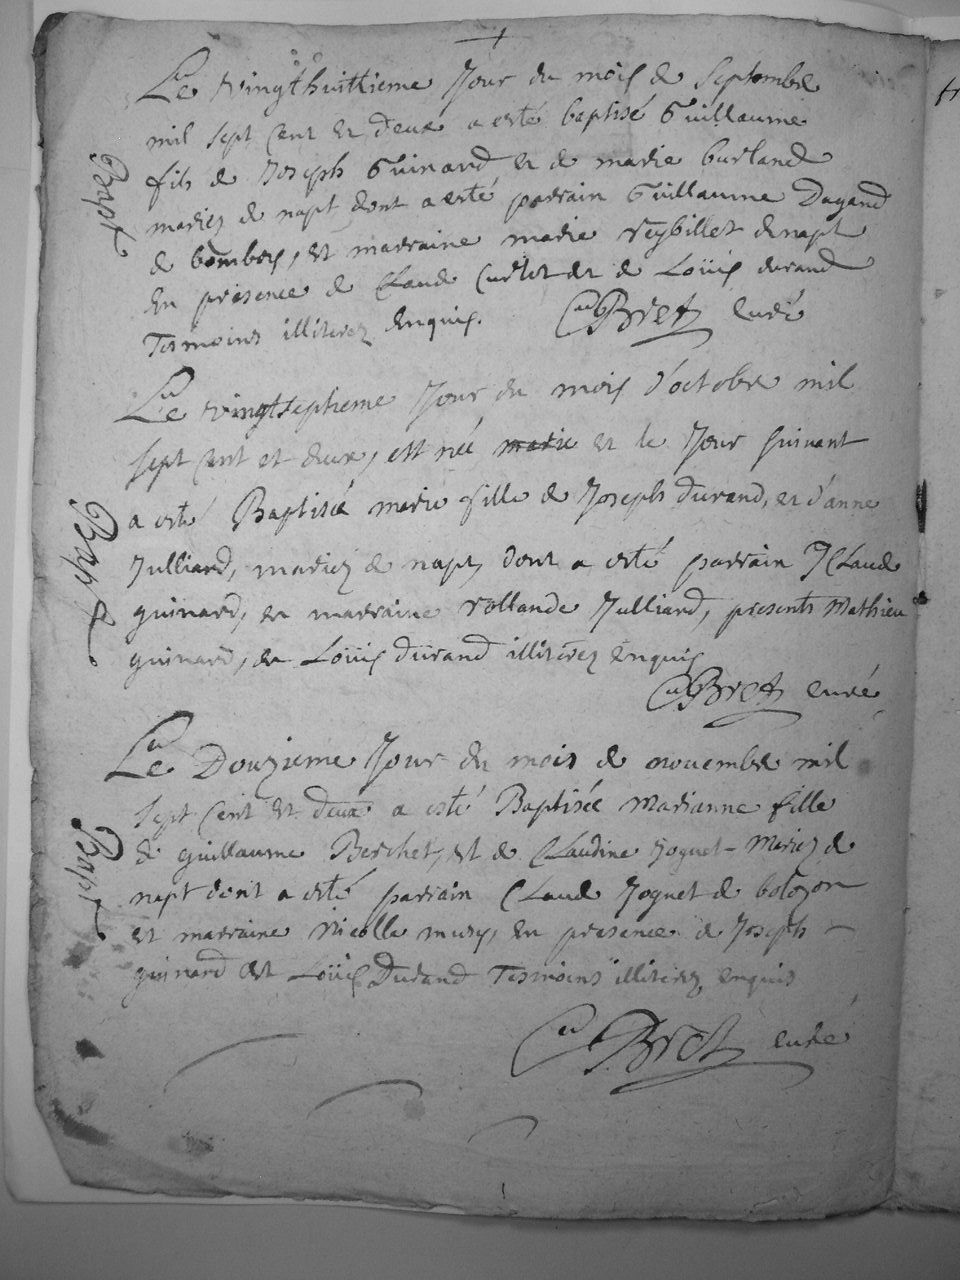 Le vingthuittieme Jour du mois de Septembre
mil sept cent et deux a esté baptisé Guillaume
fils de Joseph Guinard et de marie burland
mariez de napt dont a esté parrain Guillaume Dagand
de bombois, et marraine marie reybillet de napt
En presence de Claude Curlet et de Loüis durand
Tesmoins illiterez Enquis. Bret curé
Bapt
Le vingtseptieme Jour du mois d'octobre mil
sept cent et deux, est née marie et le Jour suivant
a esté Baptisée marie fille de Joseph durand, et d'anne
Julliard, mariez de napt, dont a esté parrain Claude
guinard, et marraine rollande Julliard, presents Mathieu
guinard, et Loüis durand illiterez enquis
Bapt
Bret curé
Le Douzieme Jour du mois de novembre mil
sept cent et deux a esté Baptisée Marianne fille
de guillaume Berchet, et de Claudine Joguet mariez de
napt dont a esté parrain Claude Joguet de bolozon
et marraine Nicolle musy, en presence de Joseph
guinard et Loüis Durand Tesmoins illiterez enquis
Bapt
Bret curé